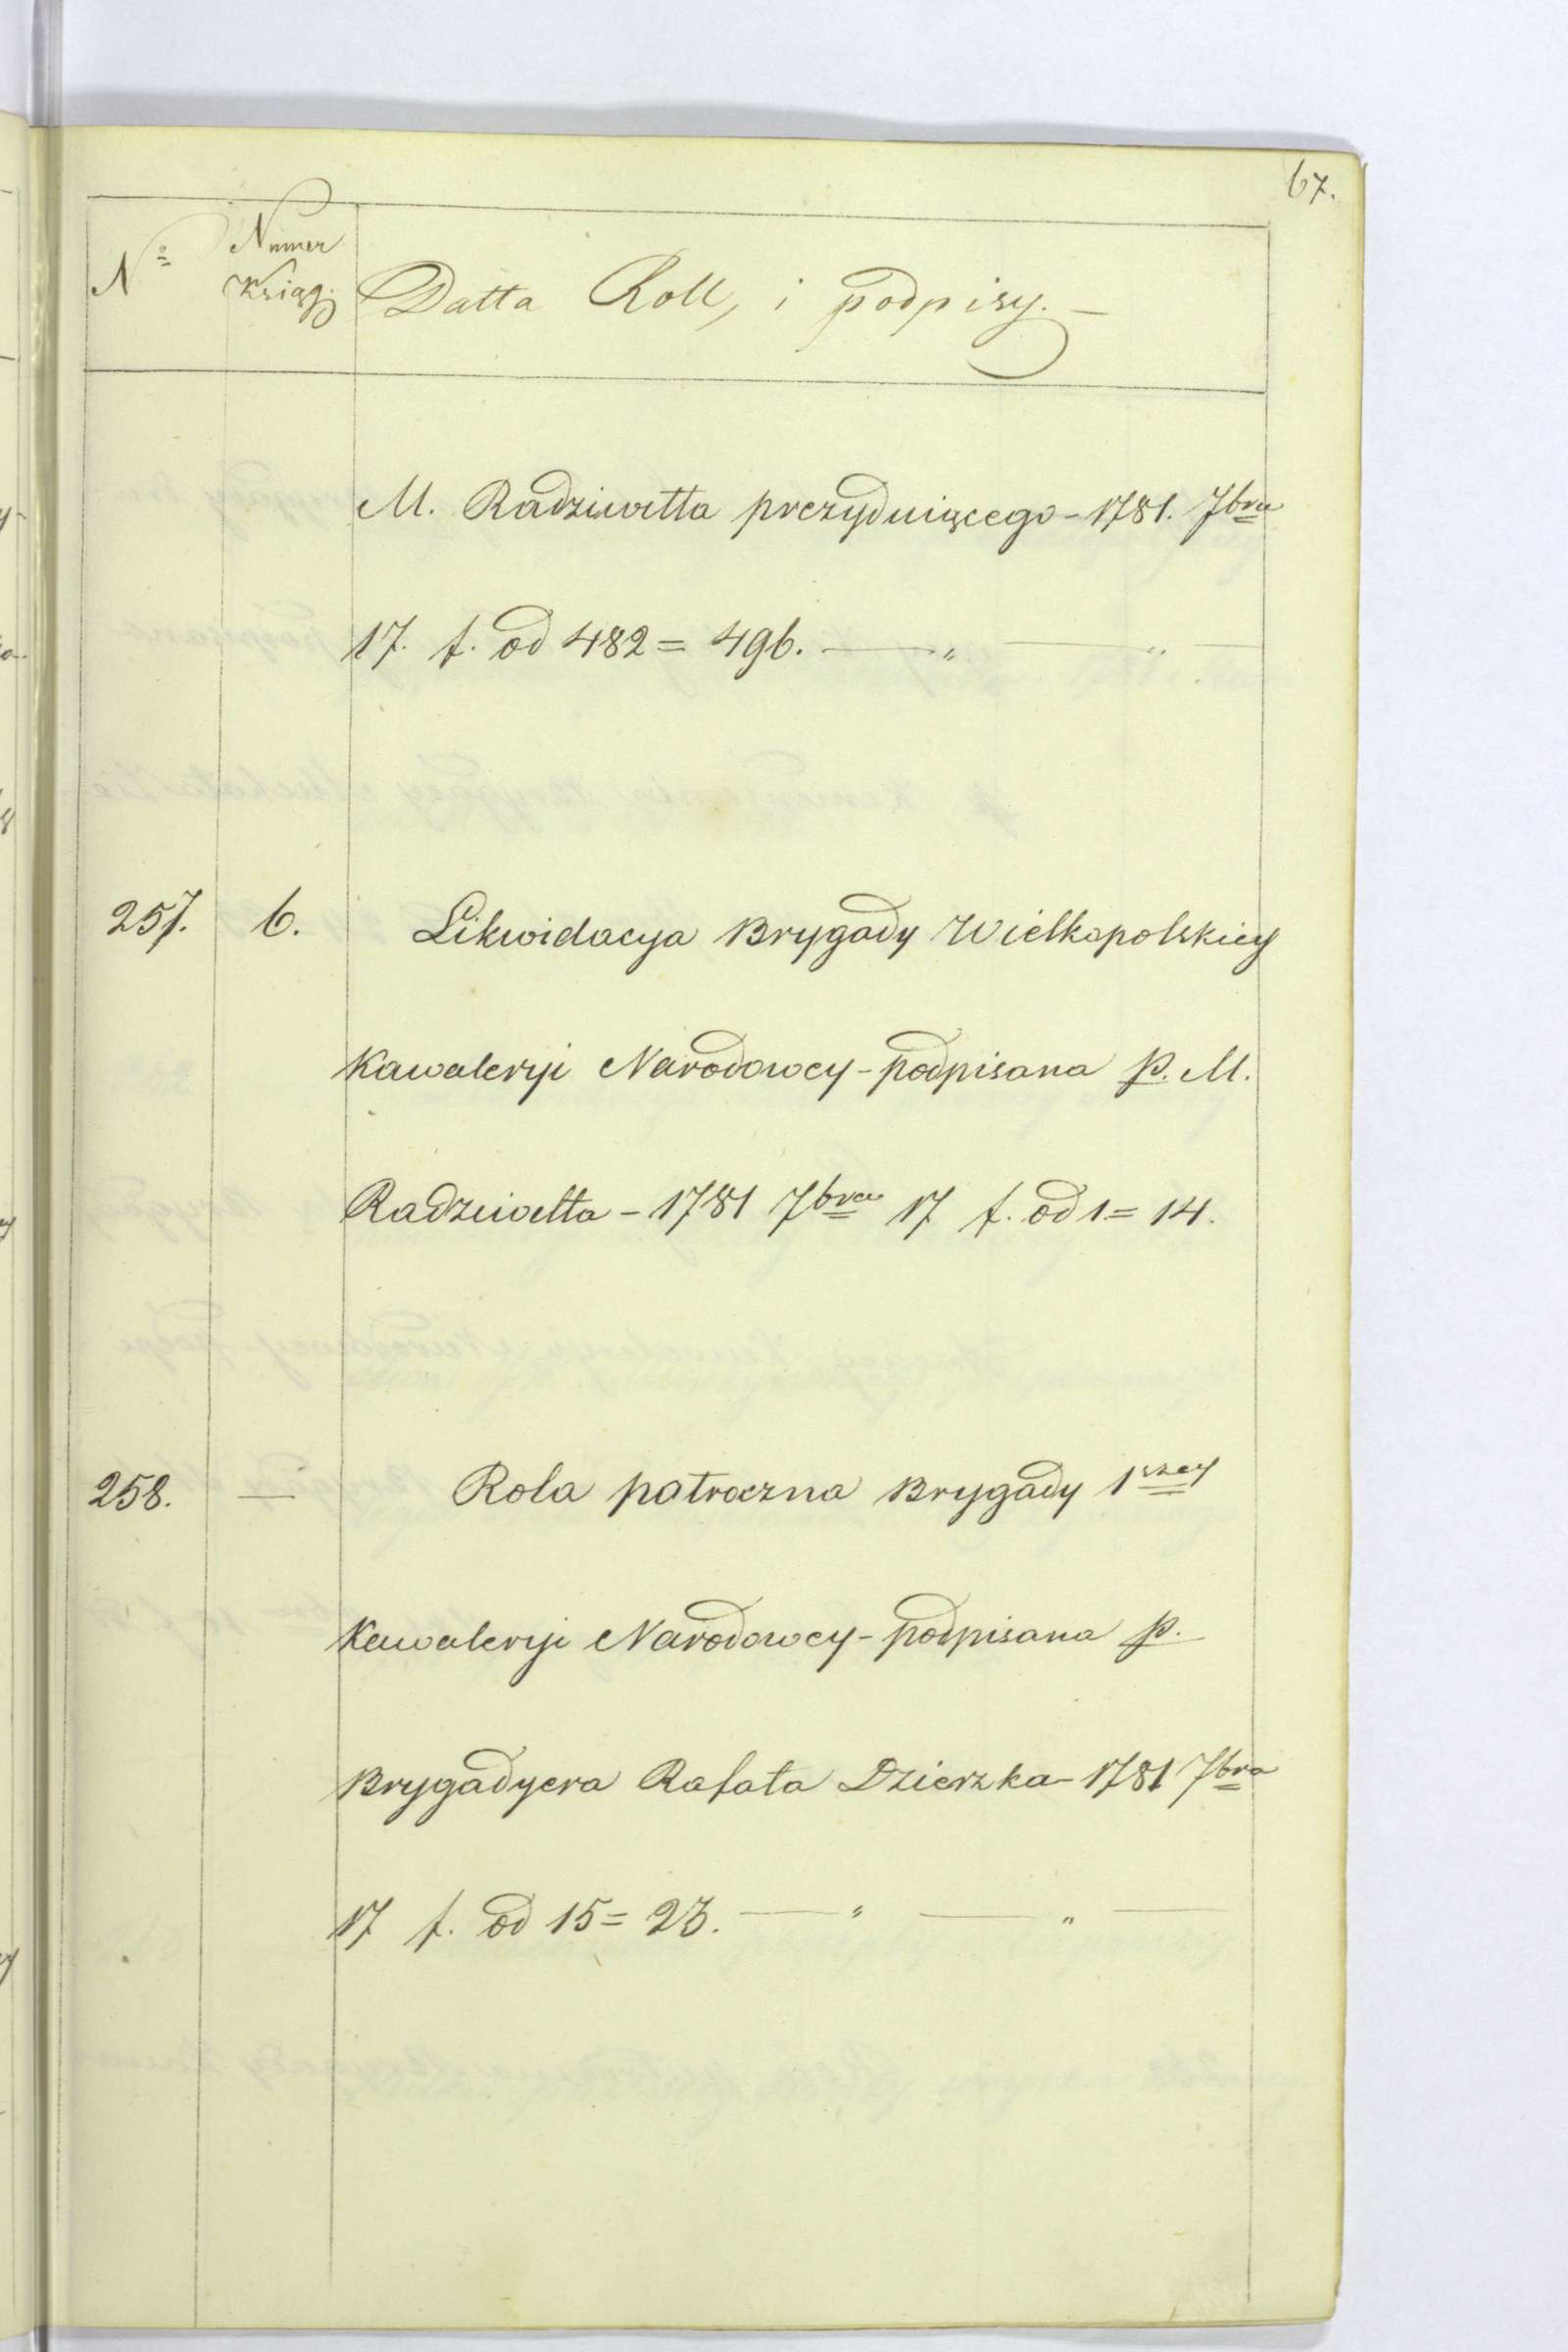 67.
Nº Numer
Książ. Datta Roll, i podpisy. –
M. Radziwiłła prezyduiącego – 1781. 7bra
17. f. od 482 = 496. — „ — „ —
257. 6. Likwidacya Brygady Wielkopolskiey
Kawaleryi Narodowey – podpisana p. M.
Radziwiłła – 1781 7bra 17 f. od 1 = 14.
258. — Rola potroczna Brygady 1szey
Kawaleryi Narodowey – podpisana p.
Brygadyera Rafała Dzierzka – 1781 7bra
17 f. od 15 = 23. — „ — „ —